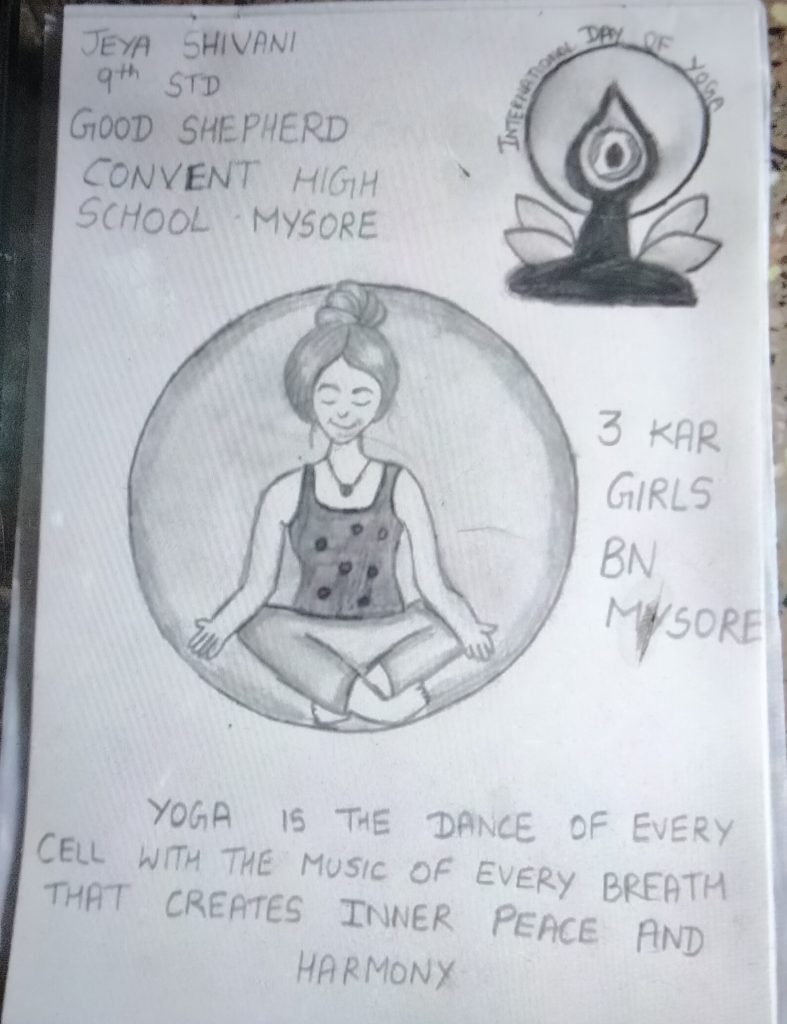 JEYA SHIVANI
9th STD
GOOD SHEPHERD
CONVENT HIGH
SCHOOL MYSORE
INTERNATIONAL DAY OF YOGA
3 KAR
GIRLS
BN
MYSORE
YOGA IS THE DANCE OF EVERY
CELL WITH THE MUSIC OF EVERY BREATH
THAT CREATES INNER PEACE AND
HARMONY